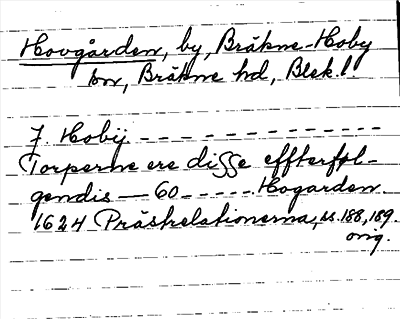 Hovgården, by, Bräkne-Hoby
sn, Bräkne hd, Blek. l.
J. Hobij. - - - - - - - - - - - - -
Torperne ere disse effterføl-
gendis — 60 - - - - - Hogarden.
1624 Prästrelationerna, ss. 188, 189.
orig.